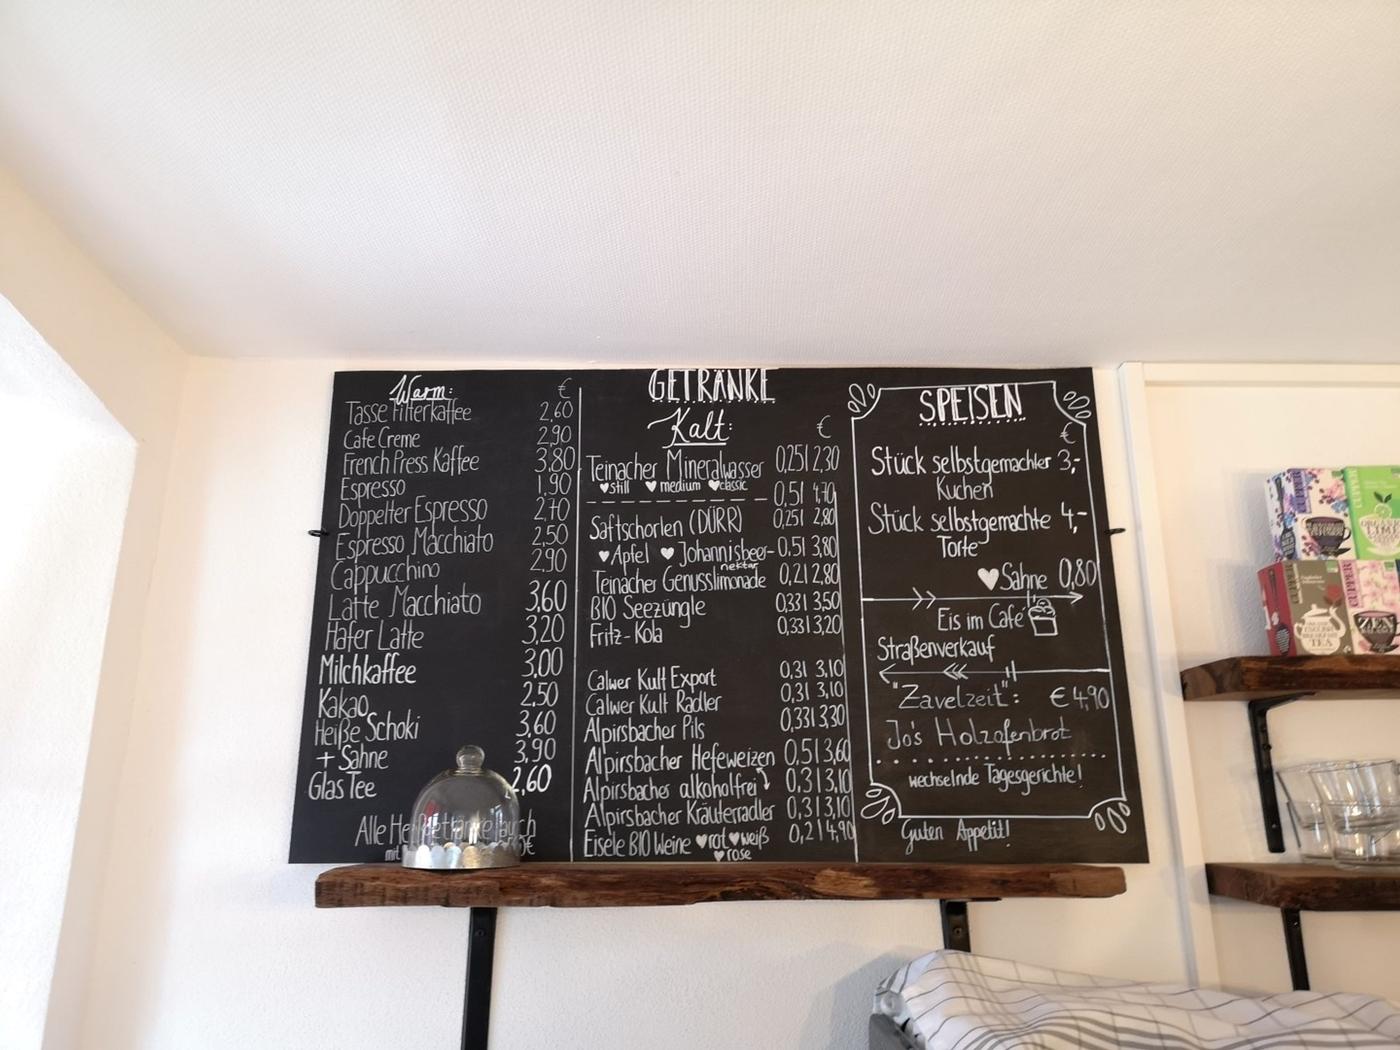 GETRÄNKE
Warm:
€
Tasse Filterkaffee 2,60
Cafe Creme 2,90
French Press Kaffee 3,80
Espresso 1,90
Doppelter Espresso 2,70
Espresso Macchiato 2,50
Cappucchino 2,90
Latte Macchiato 3,60
Hafer Latte 3,20
Milchkaffee 3,00
Kakao 2,50
Heiße Schoki 3,60
+ Sahne 3,90
Glas Tee 2,60
Alle auch
mit
Kalt:
€
Teinacher Mineralwasser 0,25l 2,30
still medium classic
0,5l 4,70
Saftschorlen (DÜRR) 0,25l 2,80
Apfel Johannisbeer- 0,5l 3,80
nektar
Teinacher Genusslimonade 0,2l 2,80
BIO Seezüngle 0,33l 3,50
Fritz-Kola 0,33l 3,20
Calwer Kult Export 0,3l 3,10
Calwer Kult Radler 0,3l 3,10
Alpirsbacher Pils 0,33l 3,30
Alpirsbacher Hefeweizen 0,5l 3,60
Alpirsbacher alkoholfrei 0,3l 3,10
Alpirsbacher Kräuterradler 0,3l 3,10
Eisele BIO Weine rot weiß 0,2l 4,90
rose
SPEISEN
€
Stück selbstgemachter 3,-
Kuchen
Stück selbstgemachte 4,-
Torte
Sahne 0,80
Eis im Café
Straßenverkauf
"Zavelzeit": € 4,90
Jo's Holzofenbrot
wechselnde Tagesgerichte!
Guten Appetit!
CUPPER
TEA
ZEN